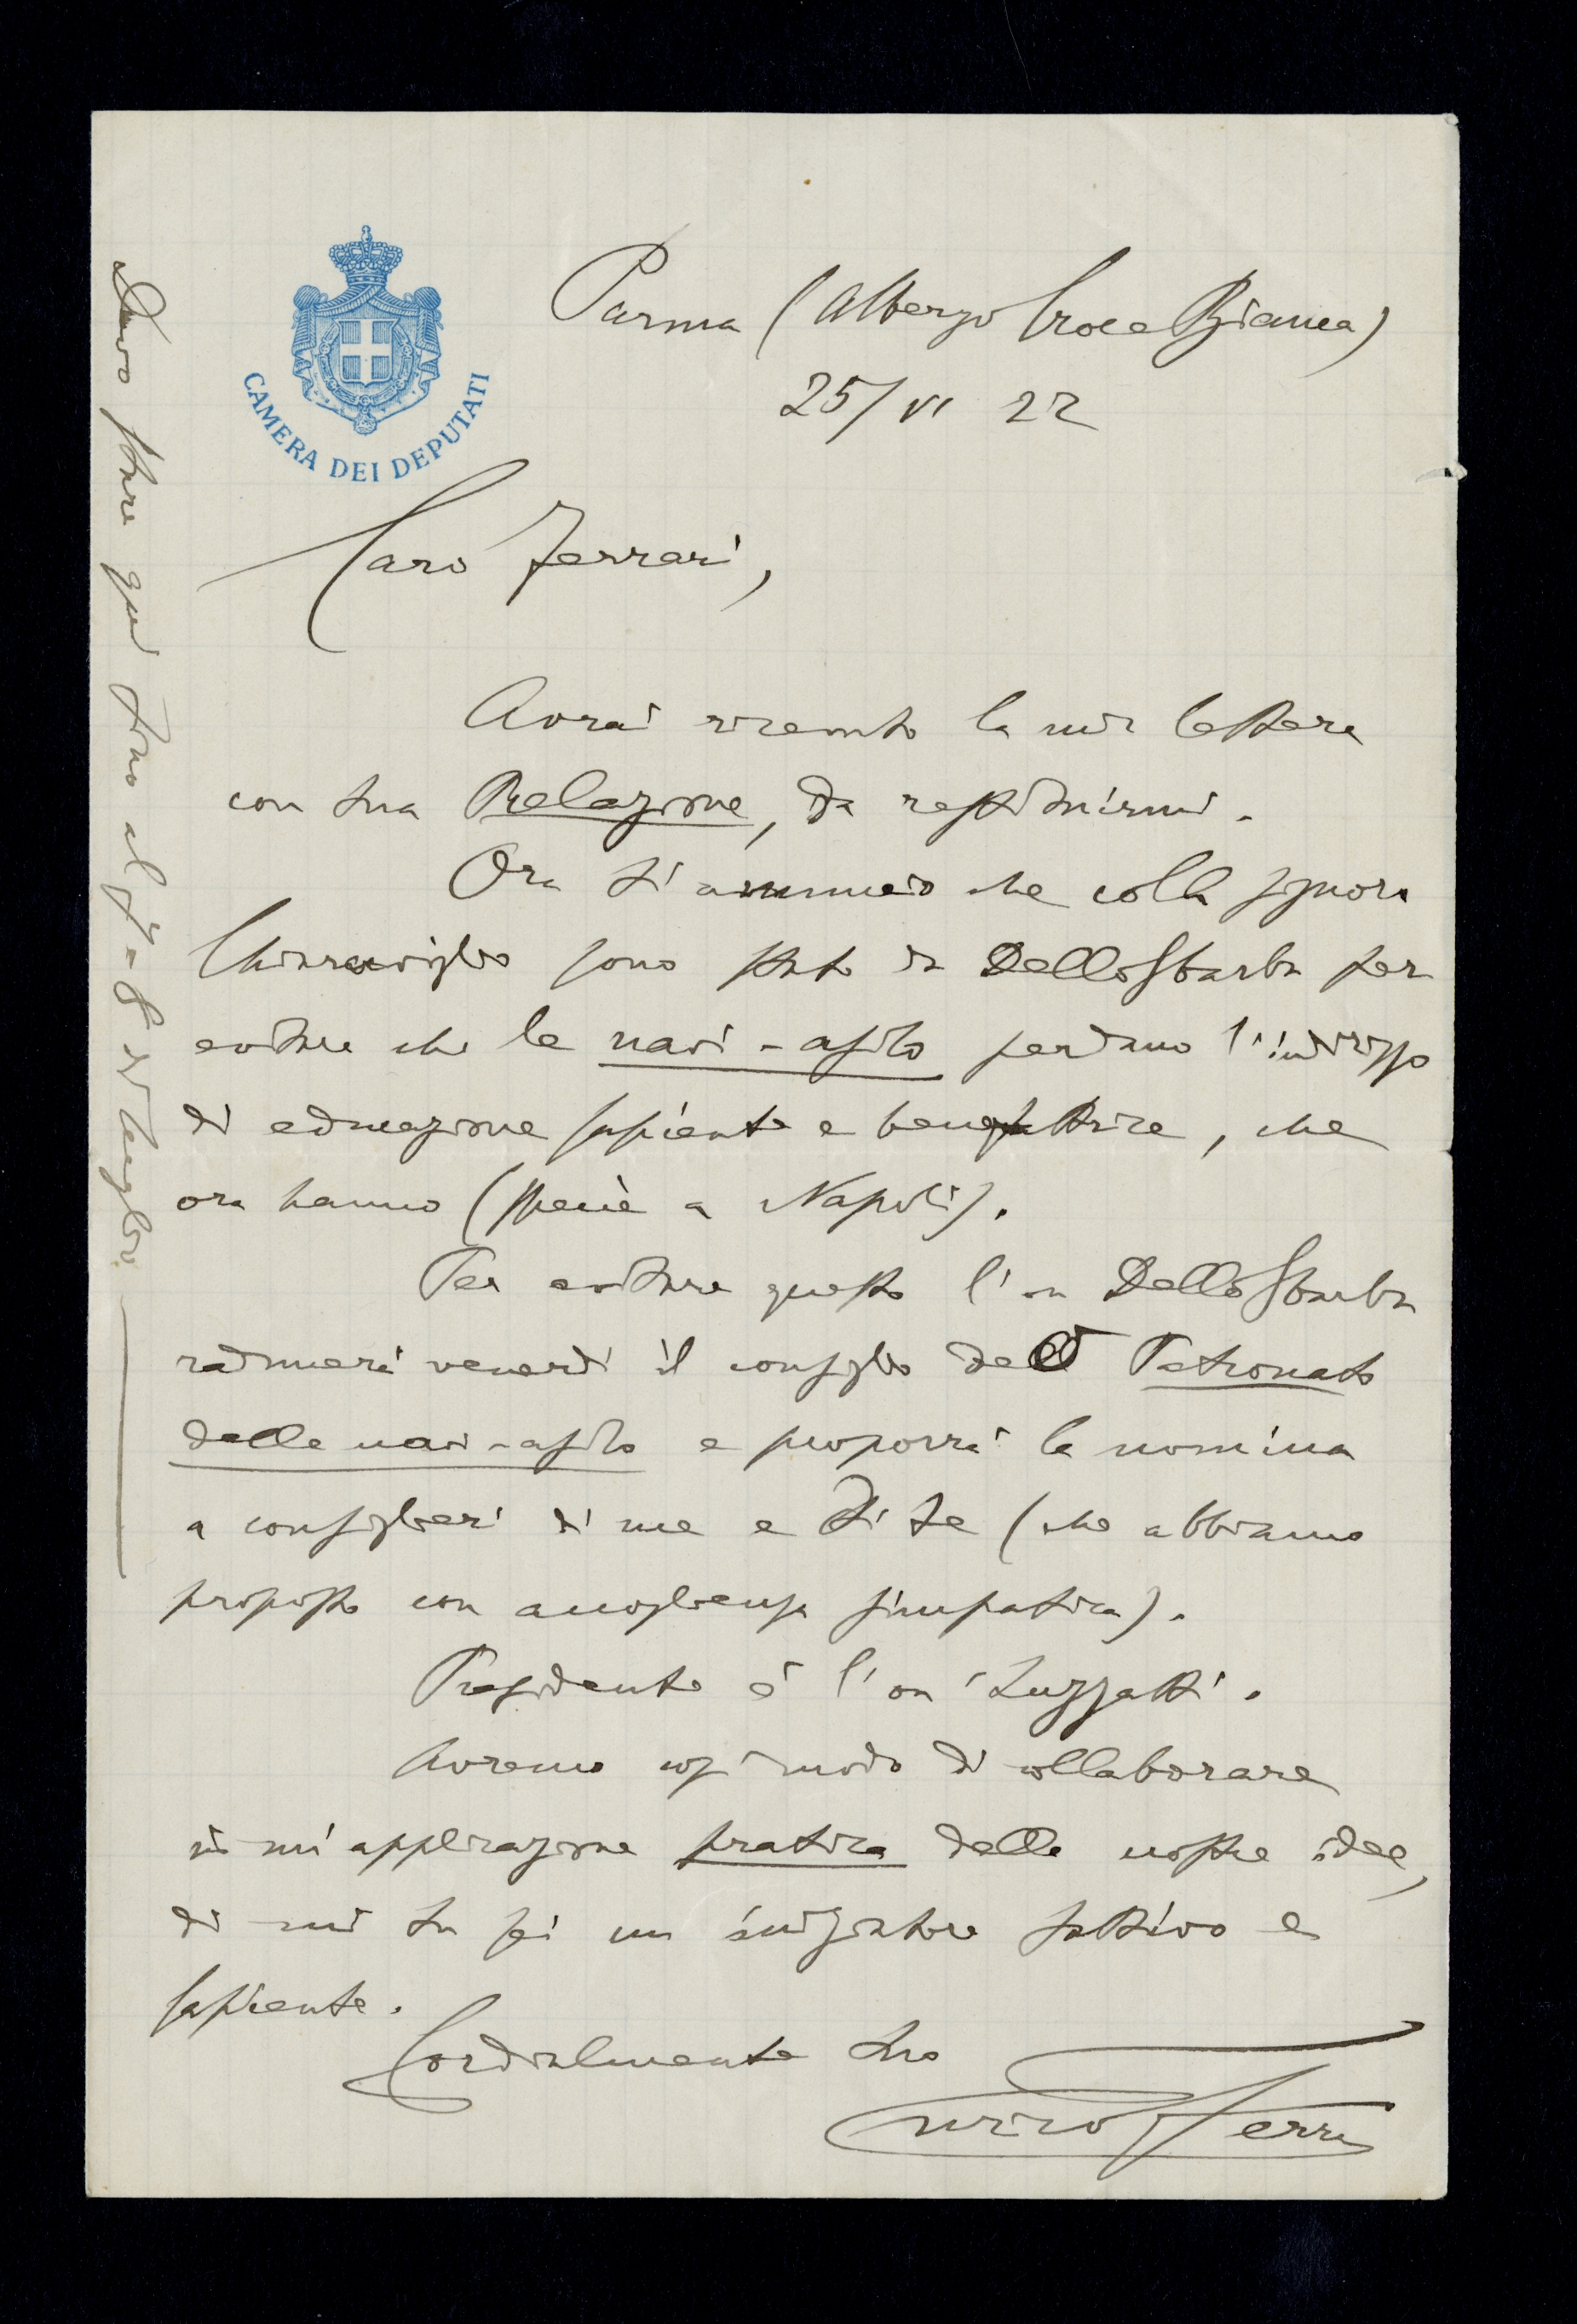 CAMERA DEI DEPUTATI
Parma (Albergo Croce Bianca)
25/VI 22
Caro Ferrari,
Avrai ricevuto la mia lettera
con tua Relazione, da restituirmi.
Ora ti annuncio che colla signora
Chiaraviglio sono stato da Dello Sbarba per
evitare che le navi-asilo perdano l'indirizzo
di educazione sapiente e benefattrice, che
ora hanno (specie a Napoli).
Per evitare questo l'on Dello Sbarba
radunerà venerdì il consiglio del Patronato
delle navi-asilo e proporrà la nomina
a consiglieri di me e di te (che abbiamo
proposto con accoglienza simpatica).
Presidente è l'on Luzzatti.
Avremo così modo di collaborare
in un'applicazione pratica delle nostre idee,
di cui tu sei un iniziatore fattivo e
sapiente.
Cordialmente tuo
Enrico Ferri
Devo stare qui fino al 7-8 di luglio.